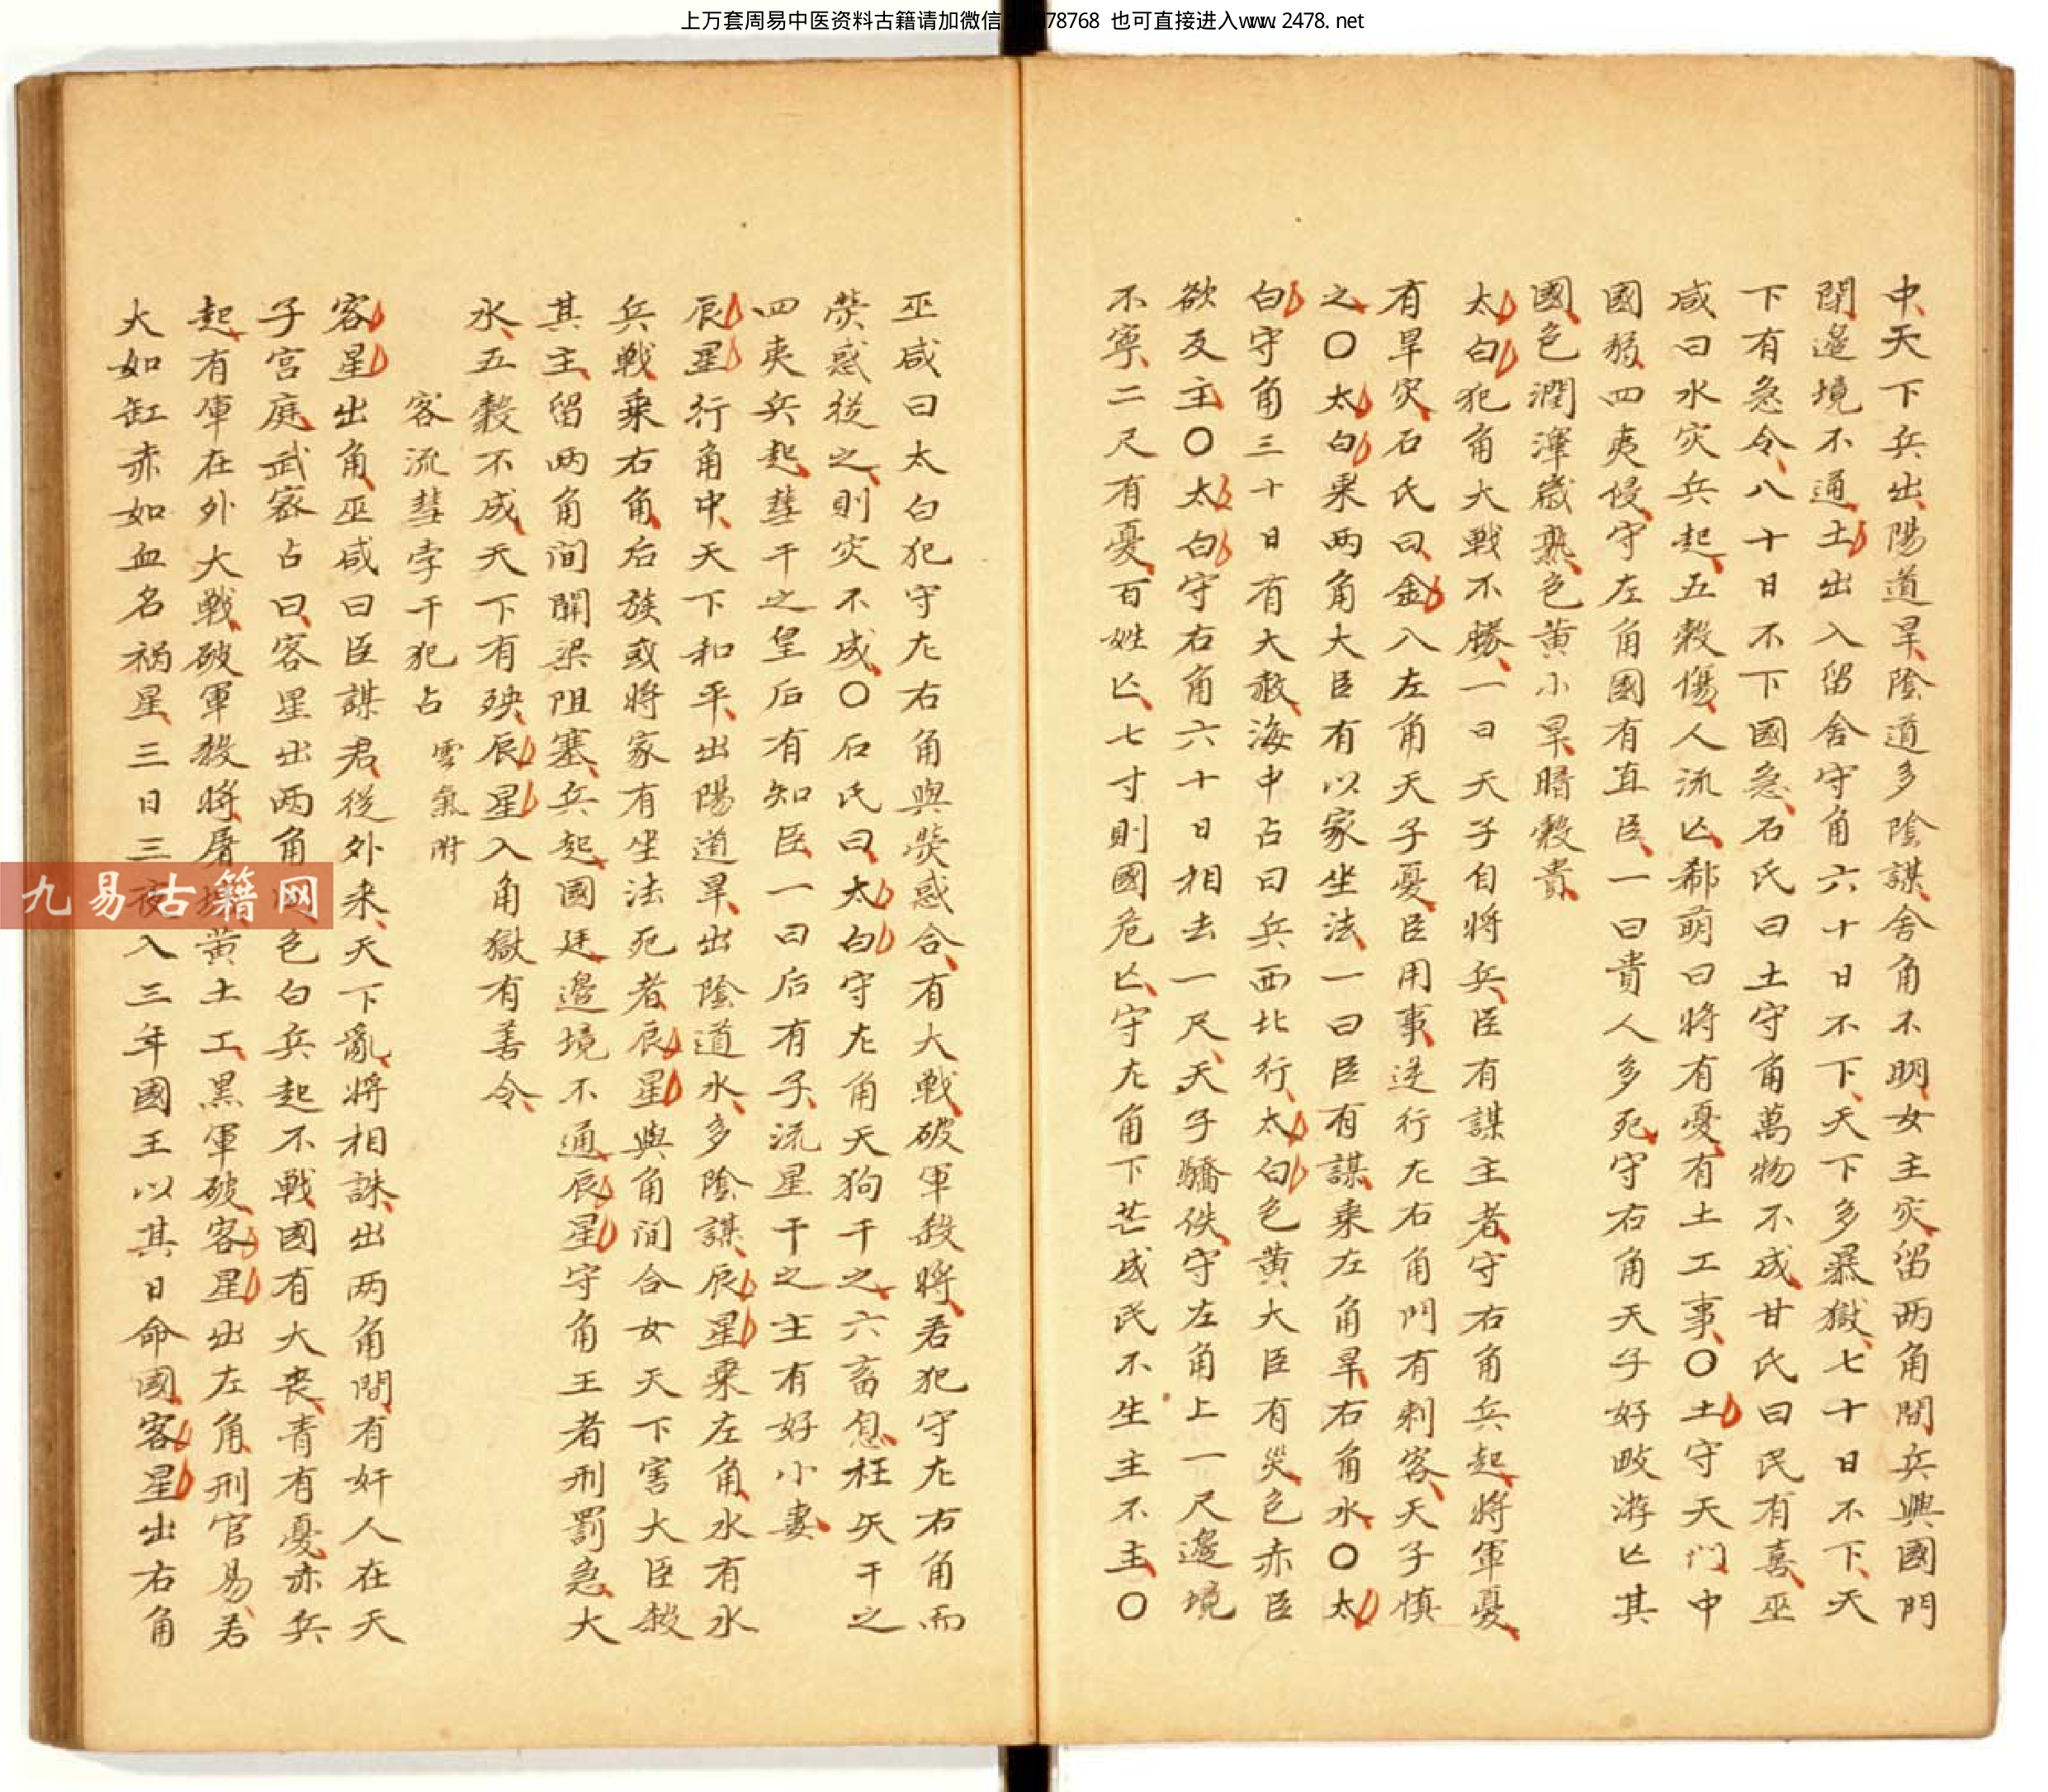 上万套周易中医资料古籍请加微信 78768 也可直接进入www.2478.net
中天下兵出陽道旱陰道多陰謀舍角不明女主灾留两角間兵興國門
閉邊境不通土出入留舍守角六十日不下天下多暴獄七十日不下天
下有急令八十日不下國急石氏曰土守角萬物不成甘氏曰民有喜巫
咸曰水灾兵起五穀傷人流亾郗萌曰將有憂有土工事〇土守天门中
國弱四夷侵守左角國有直臣一曰貴人多死守右角天子好畋游亾其
國色潤澤歲熟色黄小旱暗穀貴
太白犯角大戰不勝一曰天子自将兵臣有謀主者守右角兵起將軍憂
有旱灾石氏曰金入左角天子憂臣用事逆行左右角門有刺客天子慎
之〇太白乗两角大臣有以家坐法一曰臣有謀乗左角旱右角水〇太
白守角三十日有大赦海中占曰兵西北行太白色黄大臣有災色赤臣
欲反主〇太白守右角六十日相去一尺天子驕佚守左角上一尺邉境
不寧二尺有憂百姓亾七寸則國危亾守左角下芒成民不生主不主〇
巫咸曰太白犯守左右角與熒惑合有大戰破軍殺將若犯守左右角而
熒惑從之則灾不成〇石氏曰太白守左角天狗干之六畜息枉矢干之
四夷兵起彗干之皇后有知臣一曰后有子流星干之主有好小妻
辰星行角中天下和平出陽道旱出陰道水多陰謀辰星乗左角水有水
兵戰乗右角后族或将家有坐法死者辰星與角间合女天下害大臣殺
其主留两角间關梁阻塞兵起國廷邊境不通辰星守角王者刑罰急大
水五穀不成天下有殃辰星入角獄有善令
客流彗孛干犯占 雲氣附
客星出角巫咸曰臣謀君從外来天下亂將相誅出两角間有奸人在天
子宮庭武密占曰客星出两角 色白兵起不戰國有大丧青有憂赤兵
起有軍在外大戰破軍殺將屠城黄土工黒軍破客星出左角刑官易若
大如缸赤如血名禍星三日三夜入三年國王以其日命國客星出右角
九易古籍网